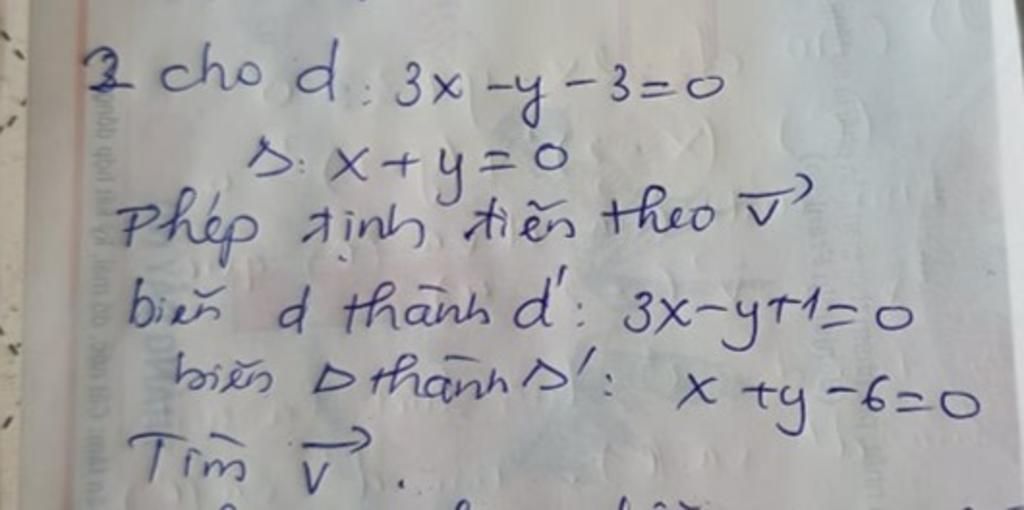 3 cho d: 3x - y - 3 = 0
Δ: x + y = 0
Phép tịnh tiến theo v⃗
biến d thành d': 3x - y + 1 = 0
biến Δ thành Δ': x + y - 6 = 0
Tìm v⃗.